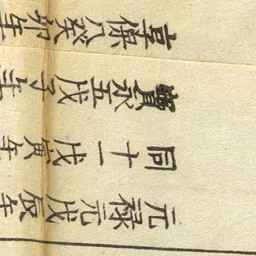 元禄元戊辰年
同十一戊寅年
寶永五戊子年
享保八癸卯年